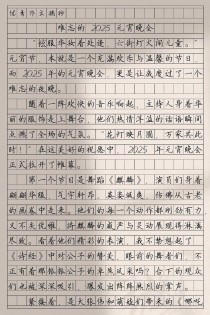 优秀作文摘抄
难忘的2025元宵晚会
"袨服华妆着处逢，六街灯火闹儿童。"
元宵节，本就是一个充满欢乐与温馨的节日，
而2025年的元宵晚会，更是让我度过了一个
难忘的夜晚。
随着一阵欢快的音乐响起，主持人身着华
丽的服饰走上舞台，他们热情洋溢的话语瞬间
点燃了全场的气氛。"花灯映月圆，万家共此
时！"在这美好的祝愿中，2025年元宵晚会
正式拉开了帷幕。
第一个节目是舞蹈《麒麟》，演员们身着
翩翩华服，气宇轩昂，英姿飒爽，仿佛从古老
的画卷中走来。他们的每一个动作都刚劲有力
又不失优雅，将麒麟的威严与灵动展现得淋漓
尽致。看着他们精彩的表演，我不禁想起了
《诗经》中对公子的赞美，眼前的舞者们，不
正有着那振振公子的卓然风采吗？台下的观众
们也被深深吸引，爆发出阵阵热烈的掌声。
紧接着，是大张伟和萌娃们带来的《哪吒